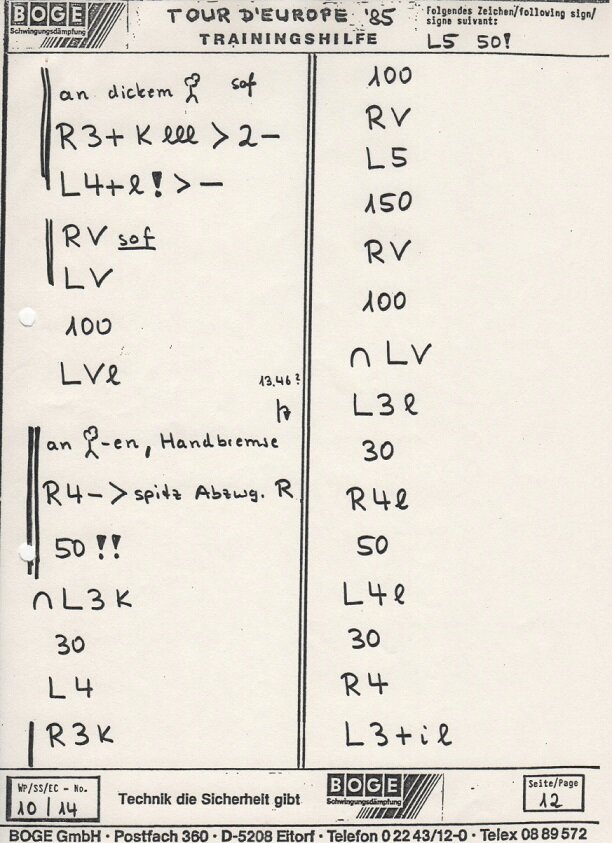 BOGE
Schwingungsdämpfung
TOUR D'EUROPE '85
TRAININGSHILFE
Folgendes Zeichen/following sign/
signe suivant:
L5 50!
an dickem sof
R3+ K lll > 2 –
L4+l! > –
RV sof
LV
100
LVl
13.46?
an -en, Handbremse
R4 – > spitz Abzwg. R
50 !!
∩ L3 K
30
L4
R3K
100
RV
L5
150
RV
100
∩ LV
L3 l
30
R4l
50
L4l
30
R4
L3+il
WP/SS/EC - No.
10 / 14
Technik die Sicherheit gibt
BOGE
Schwingungsdämpfung
Seite/Page
12
BOGE GmbH · Postfach 360 · D-5208 Eitorf · Telefon 0 22 43/12-0 · Telex 08 89 572